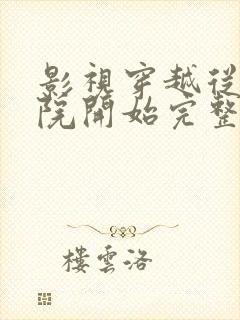 影視穿越從
院開始完整
樓雲洛